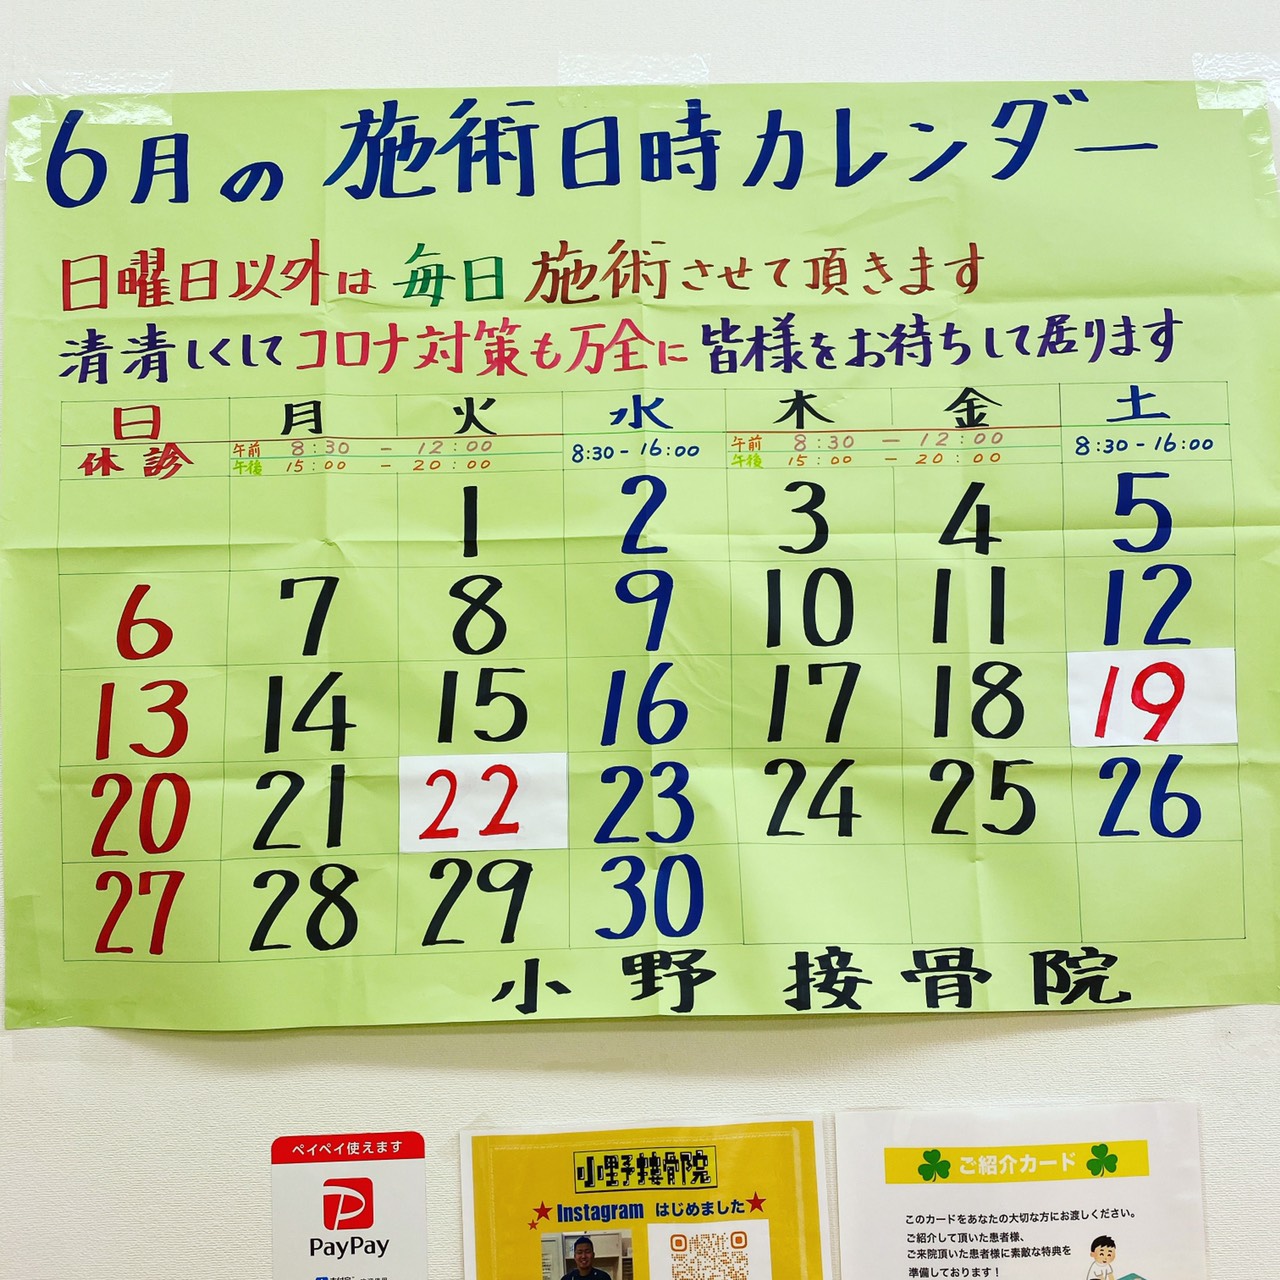 6月の施術日時カレンダー
日曜日以外は毎日施術させて頂きます
清清しくしてコロナ対策も万全に皆様をお待ちして居ります
日 月 火 水 木 金 土
休診 午前 8:30 - 12:00 8:30 - 16:00 午前 8:30 - 12:00 8:30 - 16:00
午後 15:00 - 20:00 午後 15:00 - 20:00
1 2 3 4 5
6 7 8 9 10 11 12
13 14 15 16 17 18 19
20 21 22 23 24 25 26
27 28 29 30
小野接骨院
ペイペイ使えます
PayPay
小野接骨院
Instagram はじめました
ご紹介カード
このカードをあなたの大切な方にお渡しください。
ご紹介して頂いた患者様、
ご来院頂いた患者様に素敵な特典を
準備しております！